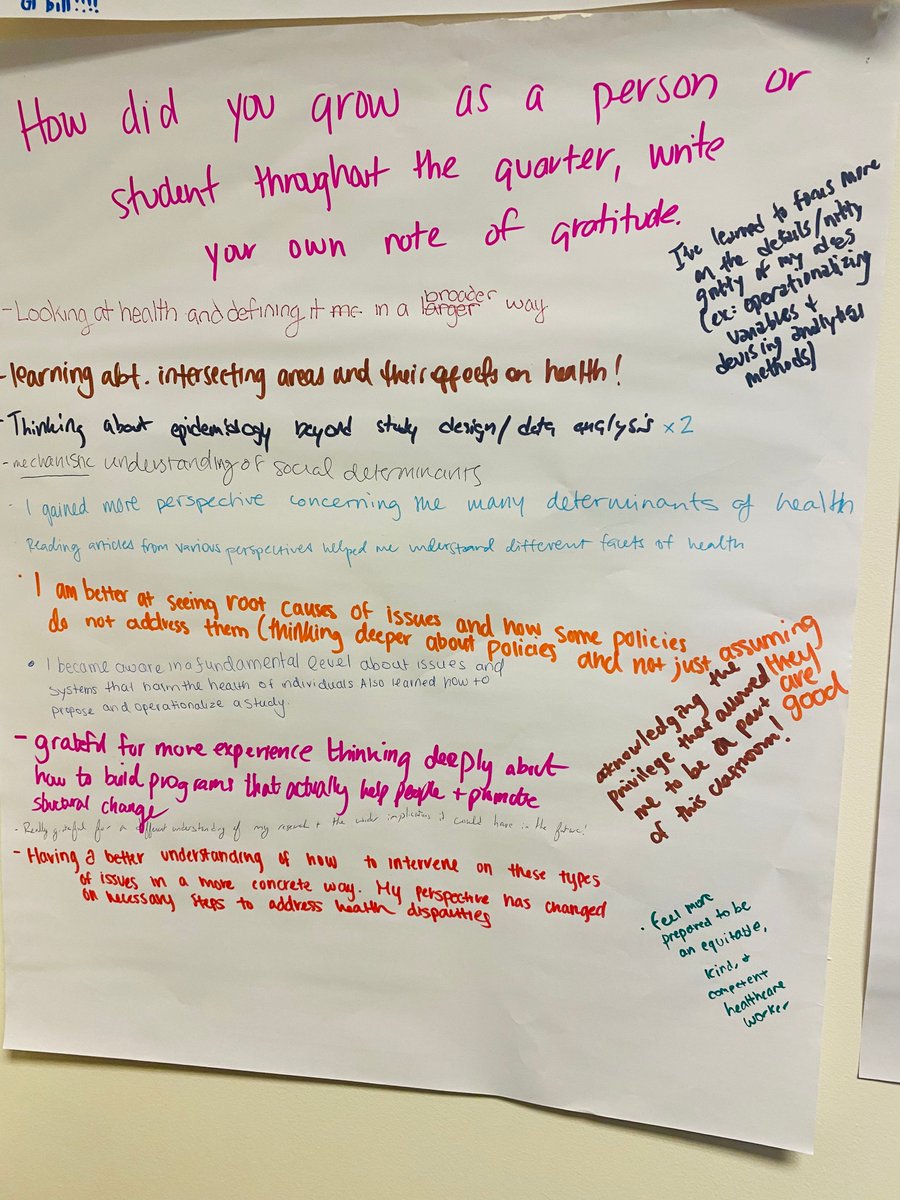 of Bill!!!!
How did you grow as a person or
student throughout the quarter, write
your own note of gratitude.
I've learned to focus more
on the details/nitty
gritty of my ideas
(ex: operationalizing
variables +
devising analytical
methods)
- Looking at health and defining it me in a larger broader way
- learning abt. intersecting areas and their effects on health!
- Thinking about epidemiology beyond study design/data analysis x2
- mechanistic understanding of social determinants
· I gained more perspective concerning the many determinants of health
· Reading articles from various perspectives helped me understand different facets of health
· I am better at seeing root causes of issues and how some policies
do not address them (thinking deeper about policies and not just assuming
they
are
good
• I became aware in a fundamental level about issues and
systems that harm the health of individuals Also learned how to
propose and operationalize a study.
acknowledging the
privilege that allowed
me to be a part
of this classroom!
- grateful for more experience thinking deeply about
how to build programs that actually help people + promote
structural change
- Really grateful for a different understanding of my research + the wider implications it could have in the future!
- Having a better understanding of how to intervene on these types
of issues in a more concrete way. My perspective has changed
on necessary steps to address health disparities
· Feel more
prepared to be
an equitable,
kind, +
competent
healthcare
worker